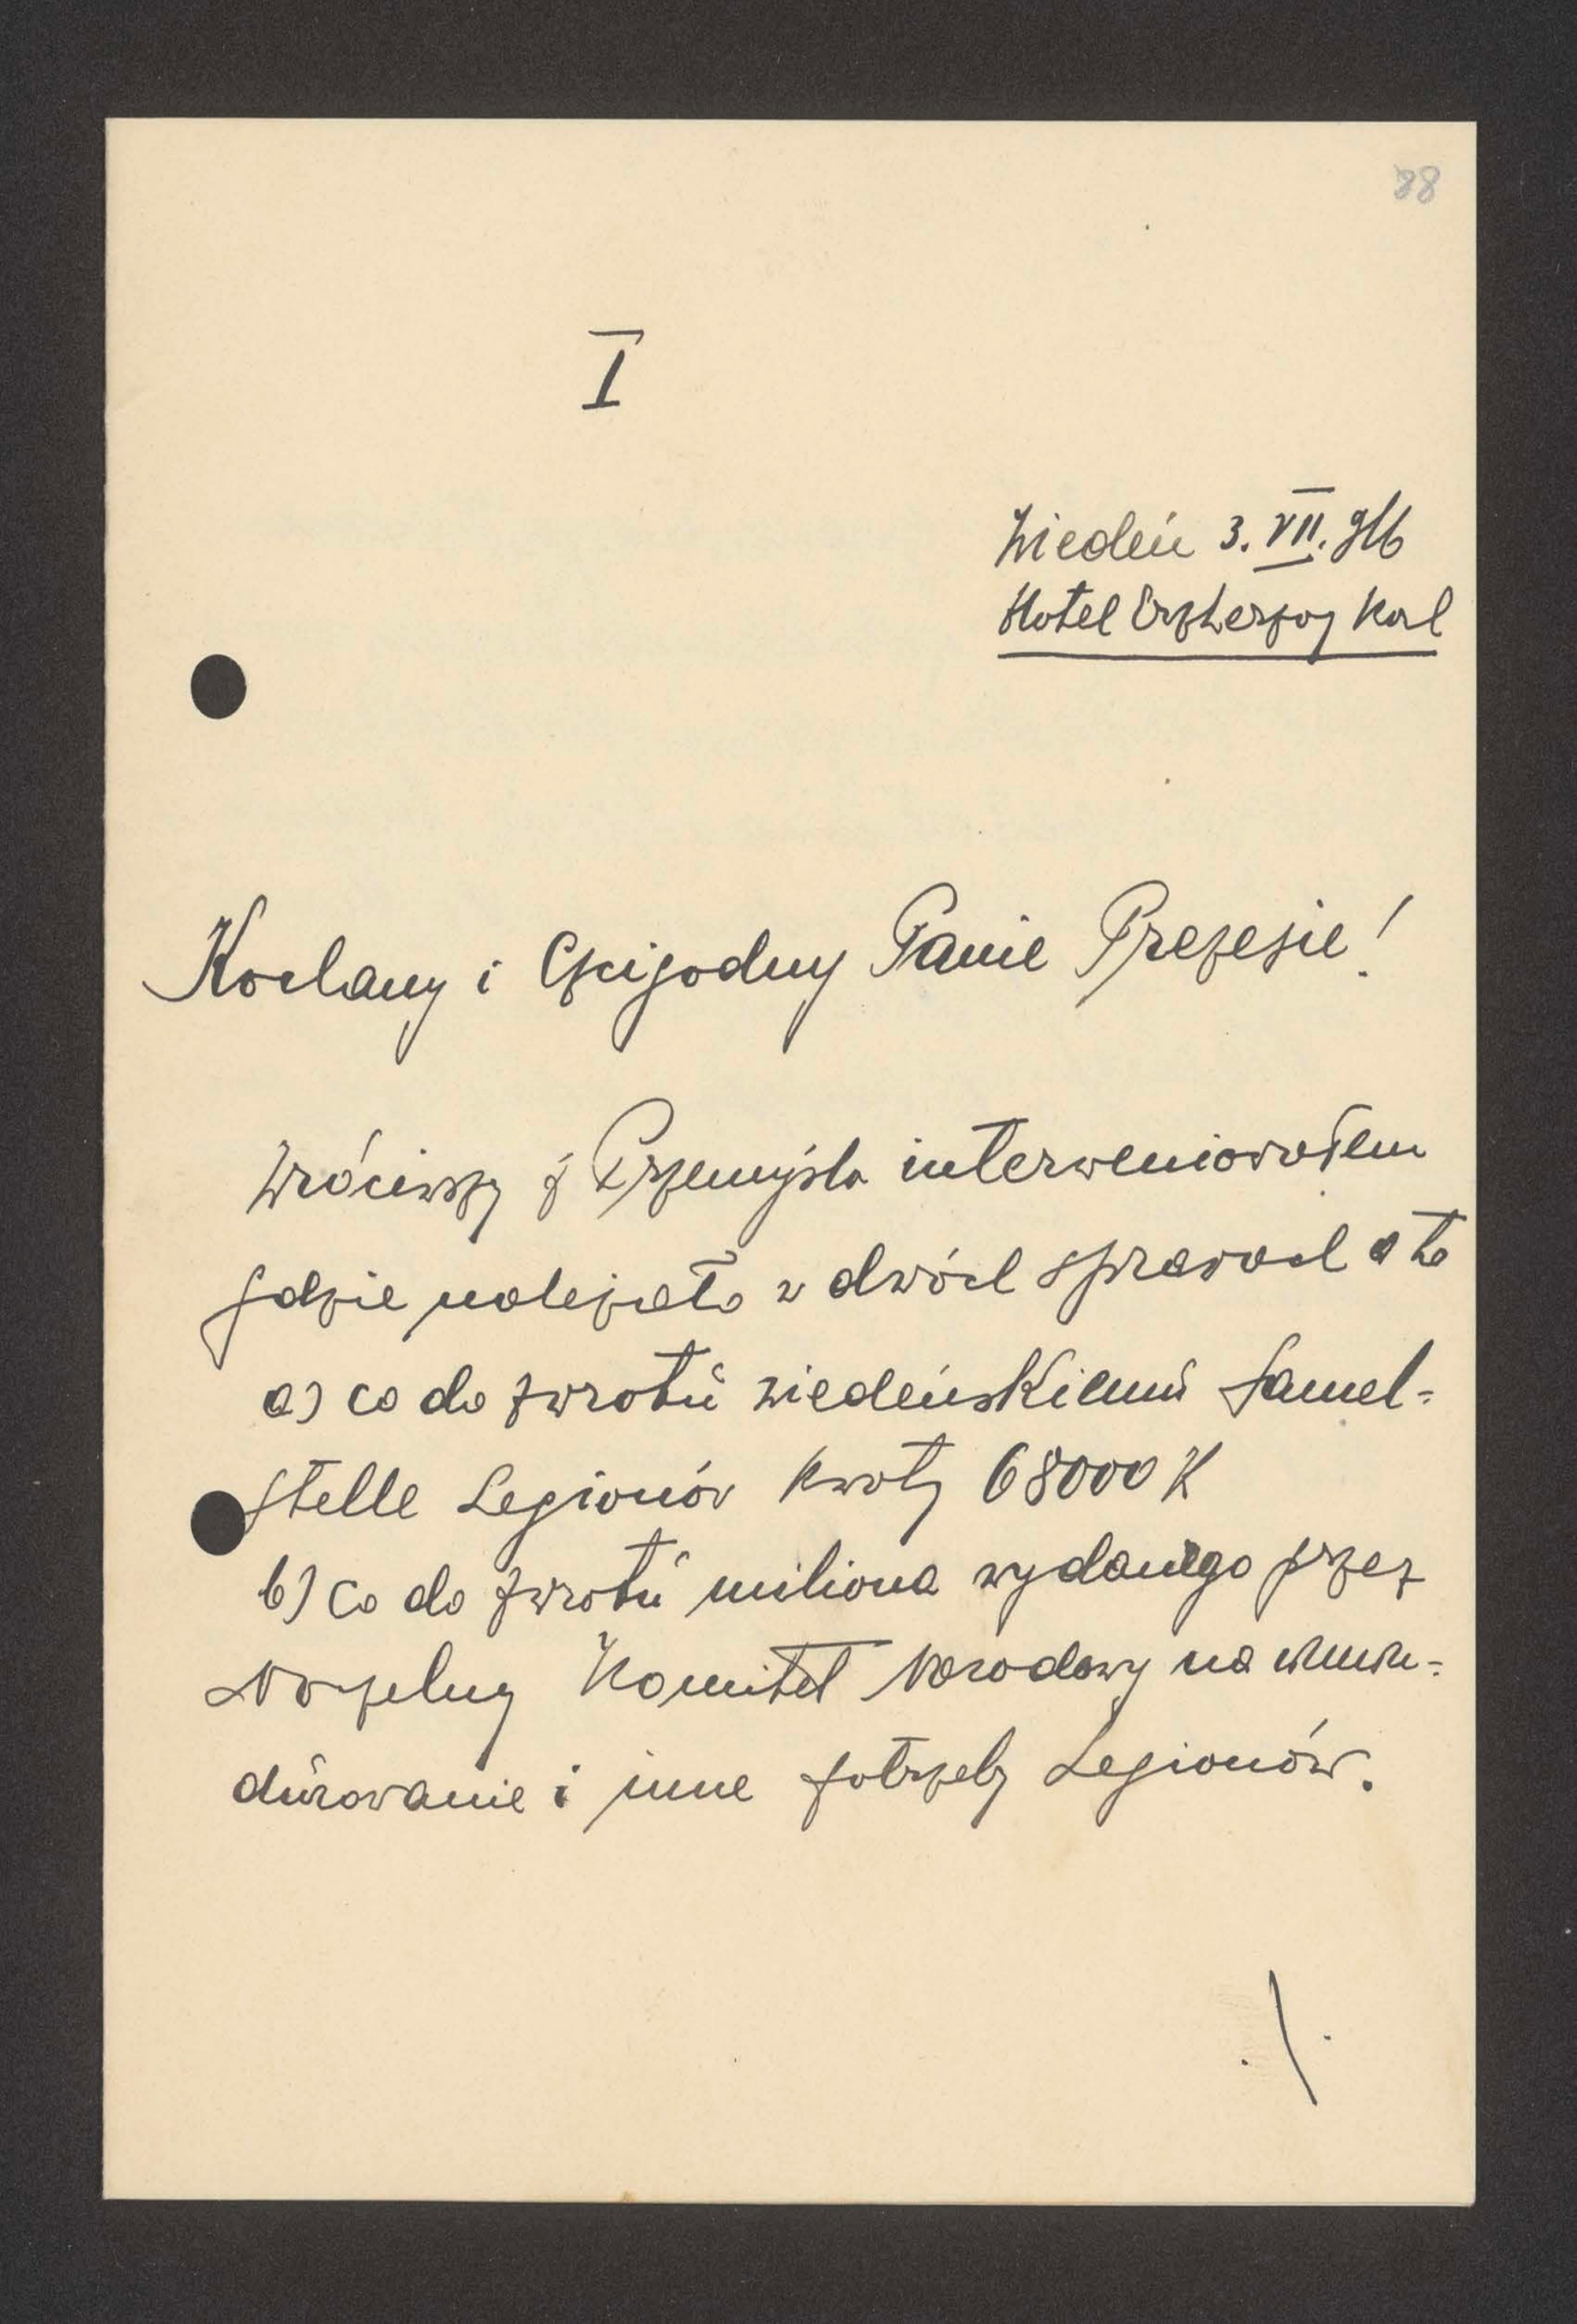 88
I
Wiedeń 3. VII. 916
Hotel Erzherzog Karl
Kochany i Czcigodny Panie Prezesie!
Wróciwszy z Przemyśla interweniowałem
gdzie należało w dwóch sprawach a to
a) co do zwrotu wiedeńskiemu Samel-
stelle Legionów kwoty 68000 K
b) co do zwrotu miliona wydanego przez
Naczelny Komitet Narodowy na umun-
durowanie i inne potrzeby Legionów.
./.